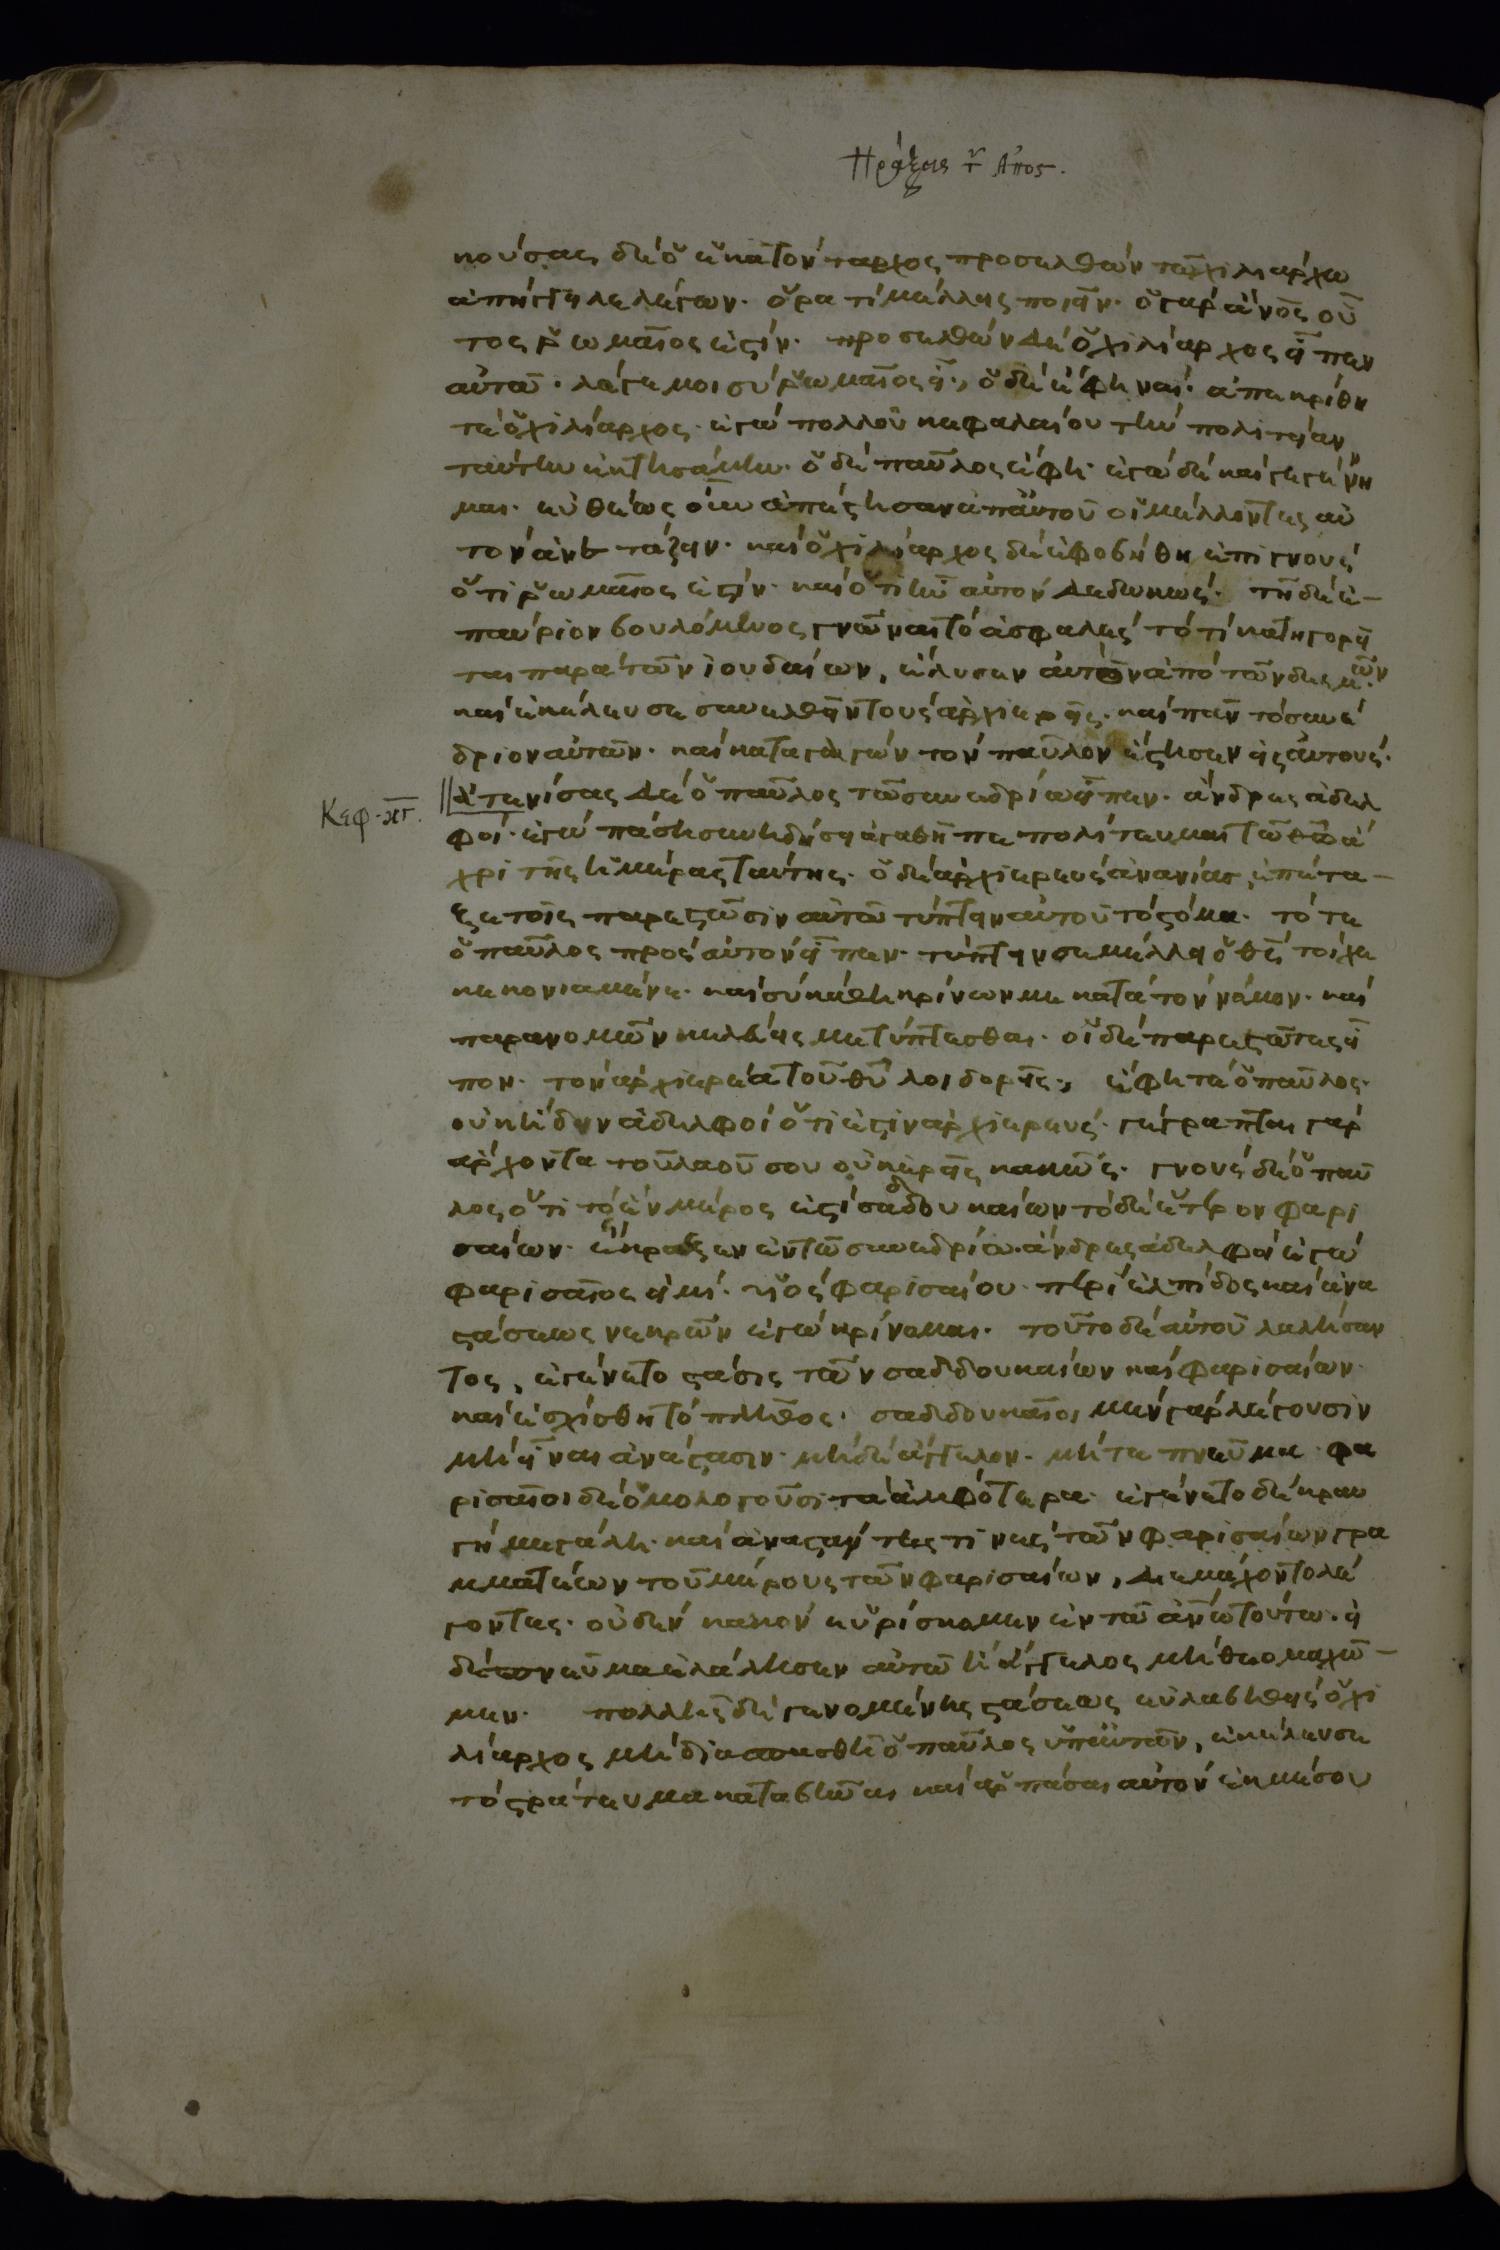 Πράξεις τ Αποσ.
κούσας δὲ ὁ ἑκατόνταρχος προσελθὼν τῶ χιλιάρχω
ἀπήγγειλε λέγων· ὅρα τί μέλλεις ποιεῖν· ὁ γὰρ ἄνος οὗ
τος ῥωμαῖος ἐστίν· προσελθὼν δὲ ὁ χιλίαρχος εἶπεν
αὐτῶ· λέγε μοι σὺ ῥωμαῖος εἶ; ὁ δὲ ἔφη ναί· ἀπεκρίθη
τε ὁ χιλίαρχος· ἐγὼ πολλοῦ κεφαλαίου τὴν πολιτείαν
ταύτην ἐκτησάμην· ὁ δὲ παῦλος ἔφη· ἐγὼ δὲ καὶ γεγένη
μαι· εὐθέως οὖν ἀπέστησαν ἀπ' αὐτοῦ οἱ μέλλοντες αὐ
τὸν ἀνετάζειν· καὶ ὁ χιλίαρχος δὲ ἐφοβήθη ἐπιγνοὺς
ὅτι ῥωμαῖος ἐστίν· καὶ ὅτι ἦν αὐτὸν δεδεκώς· τῆ δὲ ἐ–
παύριον βουλόμενος γνῶναι τὸ ἀσφαλὲς τὸ τί κατηγορεῖ
ται παρὰ τῶν ἰουδαίων, ἔλυσεν αὐτὸν ἀπὸ τῶν δεσμῶν
καὶ ἐκέλευσε συνελθεῖν τοὺς ἀρχιερεῖς· καὶ πᾶν τὸ συνέ
δριον αὐτῶν· καὶ καταγαγὼν τὸν παῦλον ἔστησεν εἰς αὐτούς·
Κεφ· λγ. ἀτενίσας δὲ ὁ παῦλος τῶ συνεδρίω εἶπεν· ἄνδρες ἀδελ
φοί· ἐγὼ πάση συνειδήσει ἀγαθῆ πεπολίτευμαι τῶ θῶ ἄ
χρι τῆς ἡμέρας ταύτης· ὁ δὲ ἀρχιερεὺς ἀνανίας ἐπέτα–
ξε τοῖς παρεστῶσιν αὐτῶ τύπτειν αὐτοῦ τὸ στόμα· τότε
ὁ παῦλος πρὸς αὐτὸν εἶπεν· τύπτειν σε μέλλει ὁ θς τοῖχε
κεκονιαμένε· καὶ σὺ κάθη κρίνων με κατὰ τὸν νόμον· καὶ
παρανομῶν κελεύεις με τύπτεσθαι· οἱ δὲ παρεστῶτες εἶ
πον· τὸν ἀρχιερέα τοῦ θυ λοιδορεῖς; ἔφη τε ὁ παῦλος·
οὐκ ἤδειν ἀδελφοὶ ὅτι ἐστὶν ἀρχιερεύς· γέγραπται γάρ
ἄρχοντα τοῦ λαοῦ σου οὐκ ἐρεῖς κακῶς· γνοὺς δὲ ὁ παῦ
λος ὅτι τὸ ἓν μέρος ἐστὶ σαδδουκαίων τὸ δὲ ἕτερον φαρι
σαίων· ἔκραξεν ἐν τῶ συνεδρίω· ἄνδρες ἀδελφοὶ ἐγὼ
φαρισαῖος εἰμί· υἱὸς φαρισαίου· περὶ ἐλπίδος καὶ ἀνα
στάσεως νεκρῶν ἐγὼ κρίνομαι· τοῦτο δὲ αὐτοῦ λαλήσαν
τος, ἐγένετο στάσις τῶν σαδδουκαίων καὶ φαρισαίων·
καὶ ἐσχίσθη τὸ πλῆθος· σαδδουκαῖοι μὲν γὰρ λέγουσιν
μὴ εἶναι ἀνάστασιν· μηδὲ ἄγγελον· μήτε πνεῦμα· φα
ρισαῖοι δὲ ὁμολογοῦσι τὰ ἀμφότερα· ἐγένετο δὲ κραυ
γὴ μεγάλη· καὶ ἀναστάντες τινὲς τῶν φαρισαίων γρα
μματέων τοῦ μέρους τῶν φαρισαίων, διεμάχοντο λέ
γοντες· οὐδὲν κακὸν εὑρίσκομεν ἐν τῶ ἀνω τούτω· εἰ
δὲ πνεῦμα ἐλάλησεν αὐτῶ ἢ ἄγγελος μὴ θεομαχῶ–
μεν· πολλῆς δὲ γενομένης στάσεως εὐλαβηθεὶς ὁ χι
λίαρχος μὴ διασπασθῆ ὁ παῦλος ὑπ' αὐτῶν, ἐκέλευσε
τὸ στράτευμα καταβῆναι καὶ ἁρπάσαι αὐτὸν ἐκ μέσου